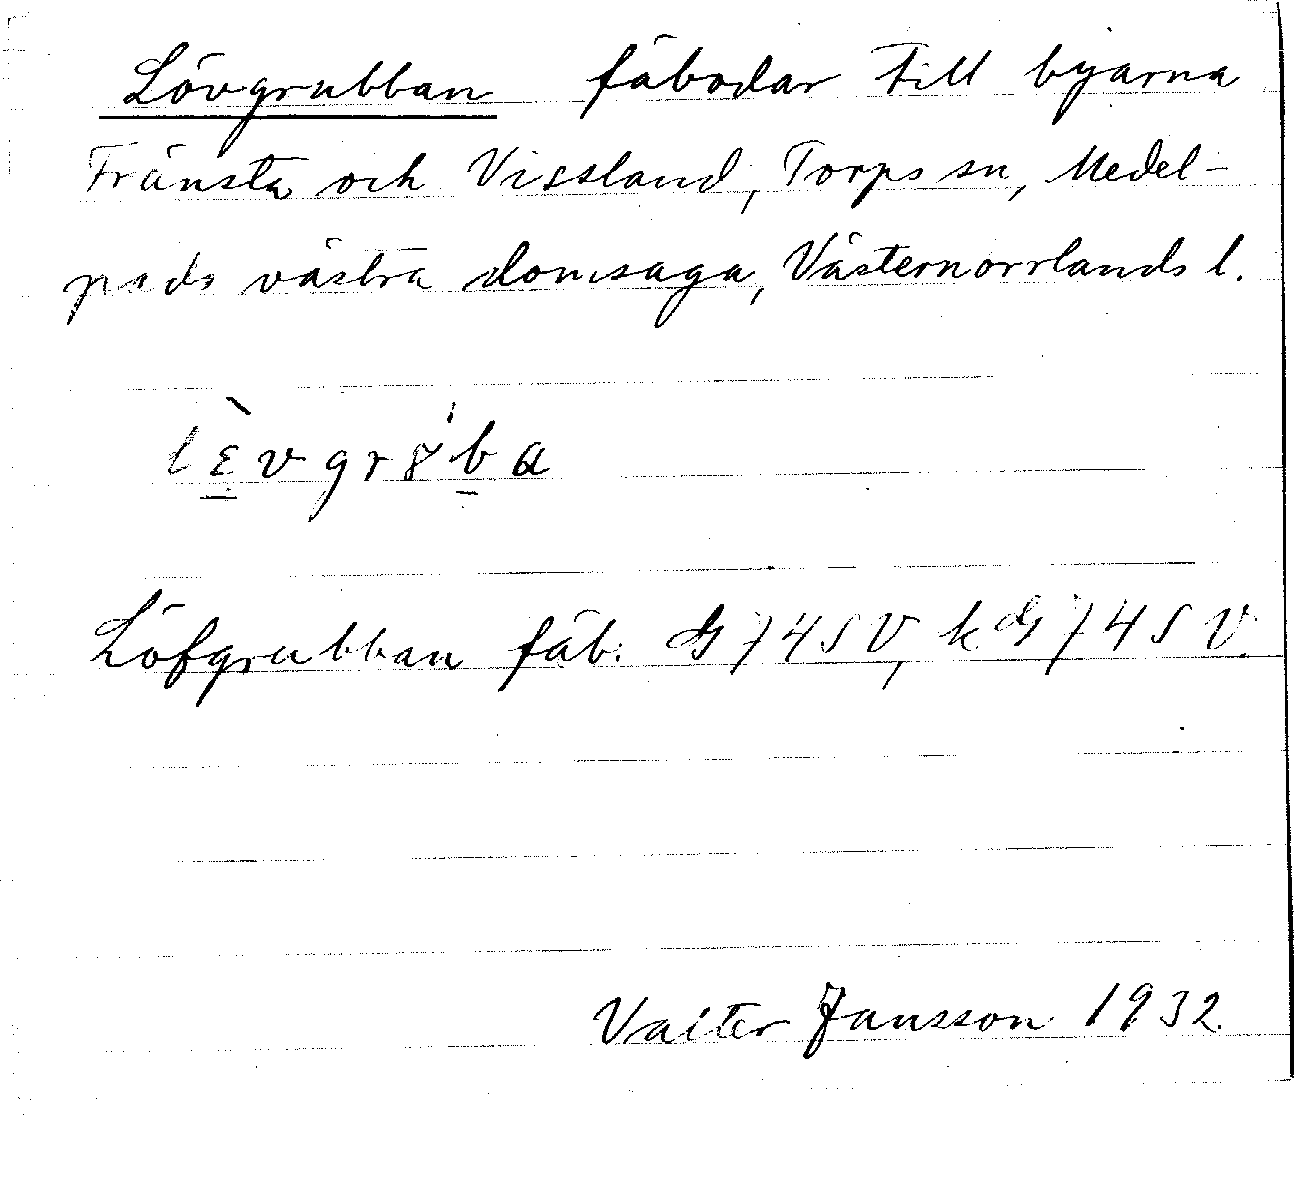 Lövgrubban fäbodar till byarna
Fränsta och Vissland, Torps sn, Medel-
pads västra domsaga, Västernorrlands l.
Löfgrubban fäb. 74 SV, k 74 SV.
Valter Jansson 1932.